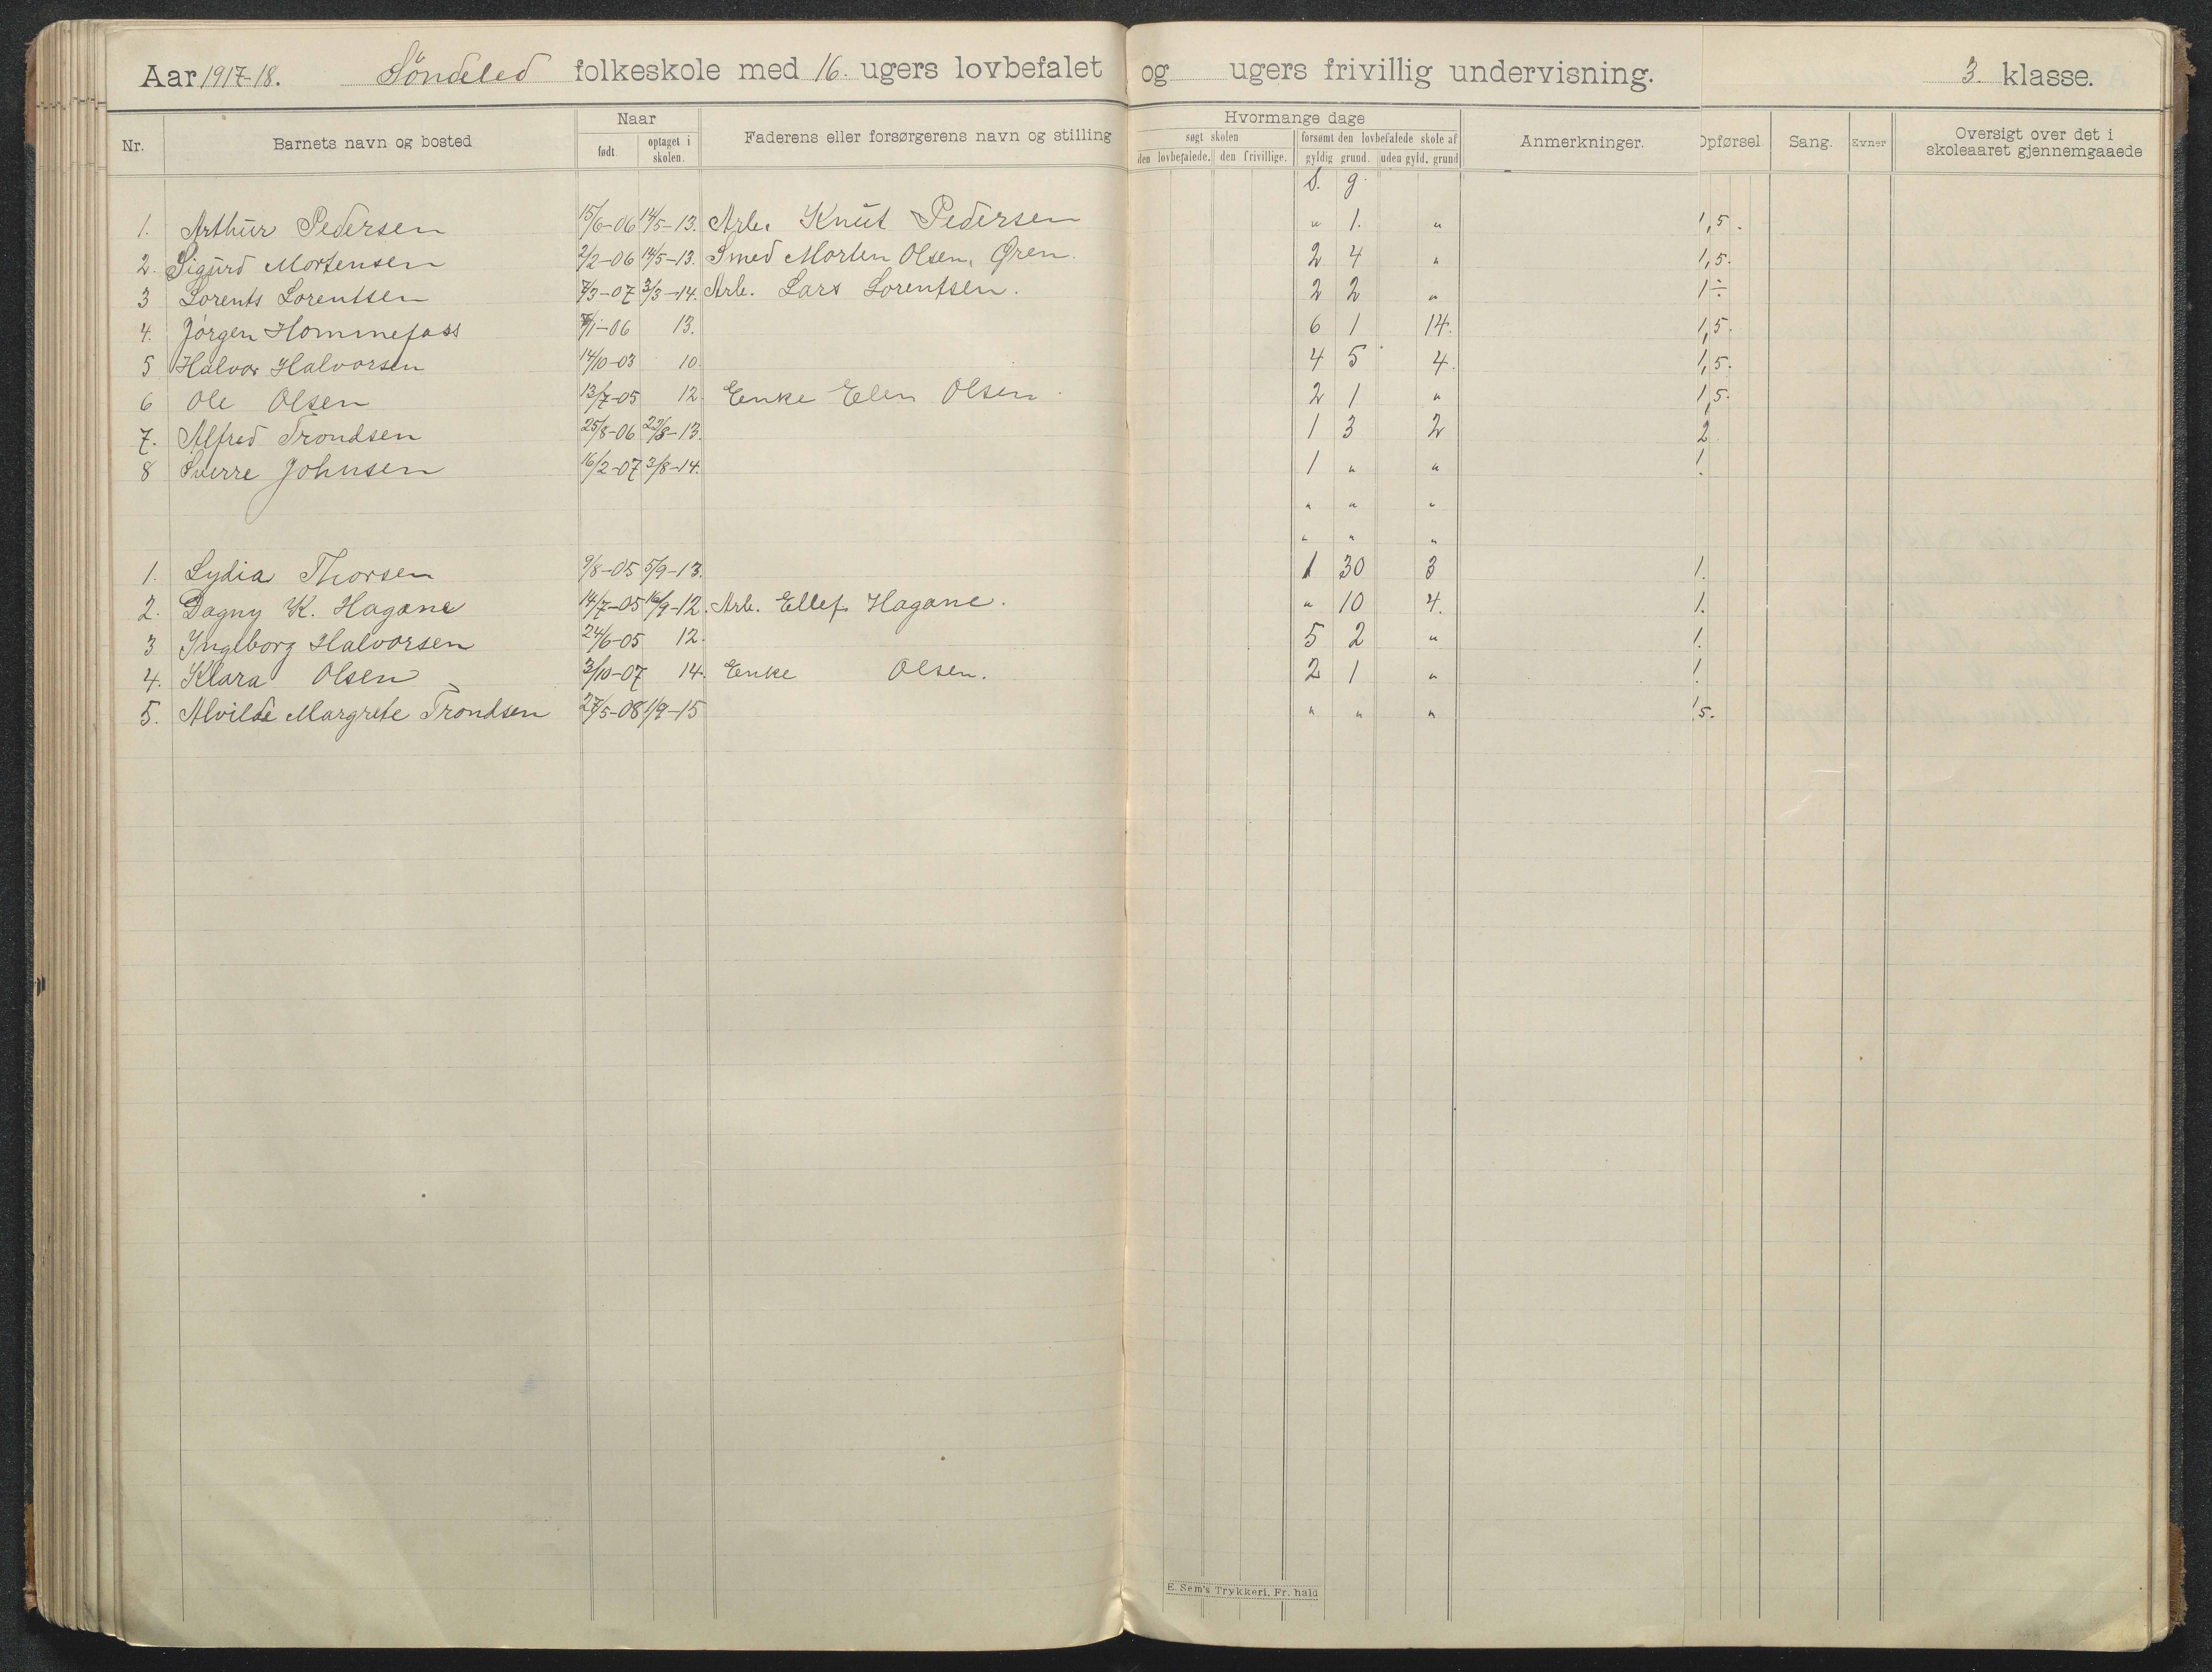 Aar 1917-18. Söndeled folkeskole med 16. ugers lovbefalet og ugers frivillig undervisning. 3. klasse.
Nr. Barnets navn og bosted Naar født. optaget i skolen. Faderens eller forsørgerens navn og stilling Hvormange dage søgt skolen den lovbefalede. den frivillige. forsømt den lovbefalede skole af gyldig grund. uden gyld. grund Anmerkninger. Opførsel. Sang. Evner Oversigt over det i skoleaaret gjennemgaaede
S. g.
1. Arthur Pedersen 15/6-06 14/5-13. Arb. Knut Pedersen " 1. " 1,5.
2. Sigurd Mortensen 2/2-06 14/5-13. Smed Morten Olsen, Gren. 2 4 " 1,5.
3 Lorents Lorentsen 7/3-07 3/3-14. Arb. Lars Lorentsen. 2 2 " 1÷
4. Jörgen Hommefoss /1-06 13. 6 1 14. 1,5.
5 Halvor Halvorsen 14/10-03 10. 4 5 4. 1,5.
6 Ole Olsen 13/7-05 12. Enke Elen Olsen. 2 1 " 1,5.
7. Alfred Trondsen 25/8-06 22/8-13. 1 3 2 2
8 Sverre Johnsen 16/2-07 3/8-14. 1 " " 1.
" " "
" " "
1. Lydia Thorsen 9/8-05 5/9-13. 1 30 3 1.
2. Dagny K. Hagane 14/7-05 16/9-12. Arb. Ellef Hagane. " 10 4. 1.
3 Ingeborg Halvorsen 24/6-05 12. 5 2 " 1.
4. Klara Olsen 3/10-07 14. Enke Olsen. 2 1 " 1.
5. Alvilde Margrete Trondsen 27/5-08 1/9-15 " " " 1,5.
E. Sem's Trykkeri, Fr.hald